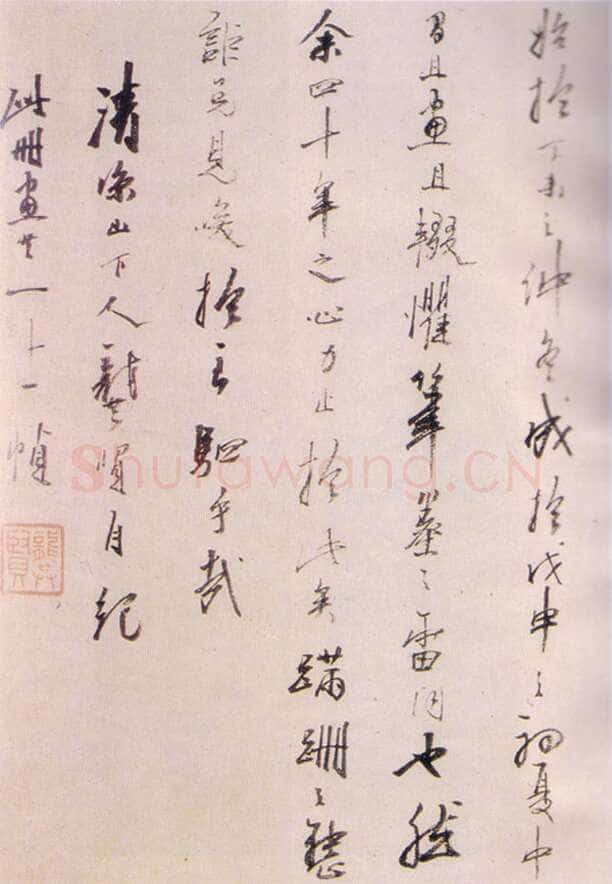 始於丁未之仲冬成於戊申之初夏中
間且畫且輟懼筆墨之雷同也然
余四十年之心力止於此矣蹣跚之
詎免見於良駟乎哉
清涼山下人龔賢自紀
此冊畫共一十一幀
龔賢
Shufawang.CN